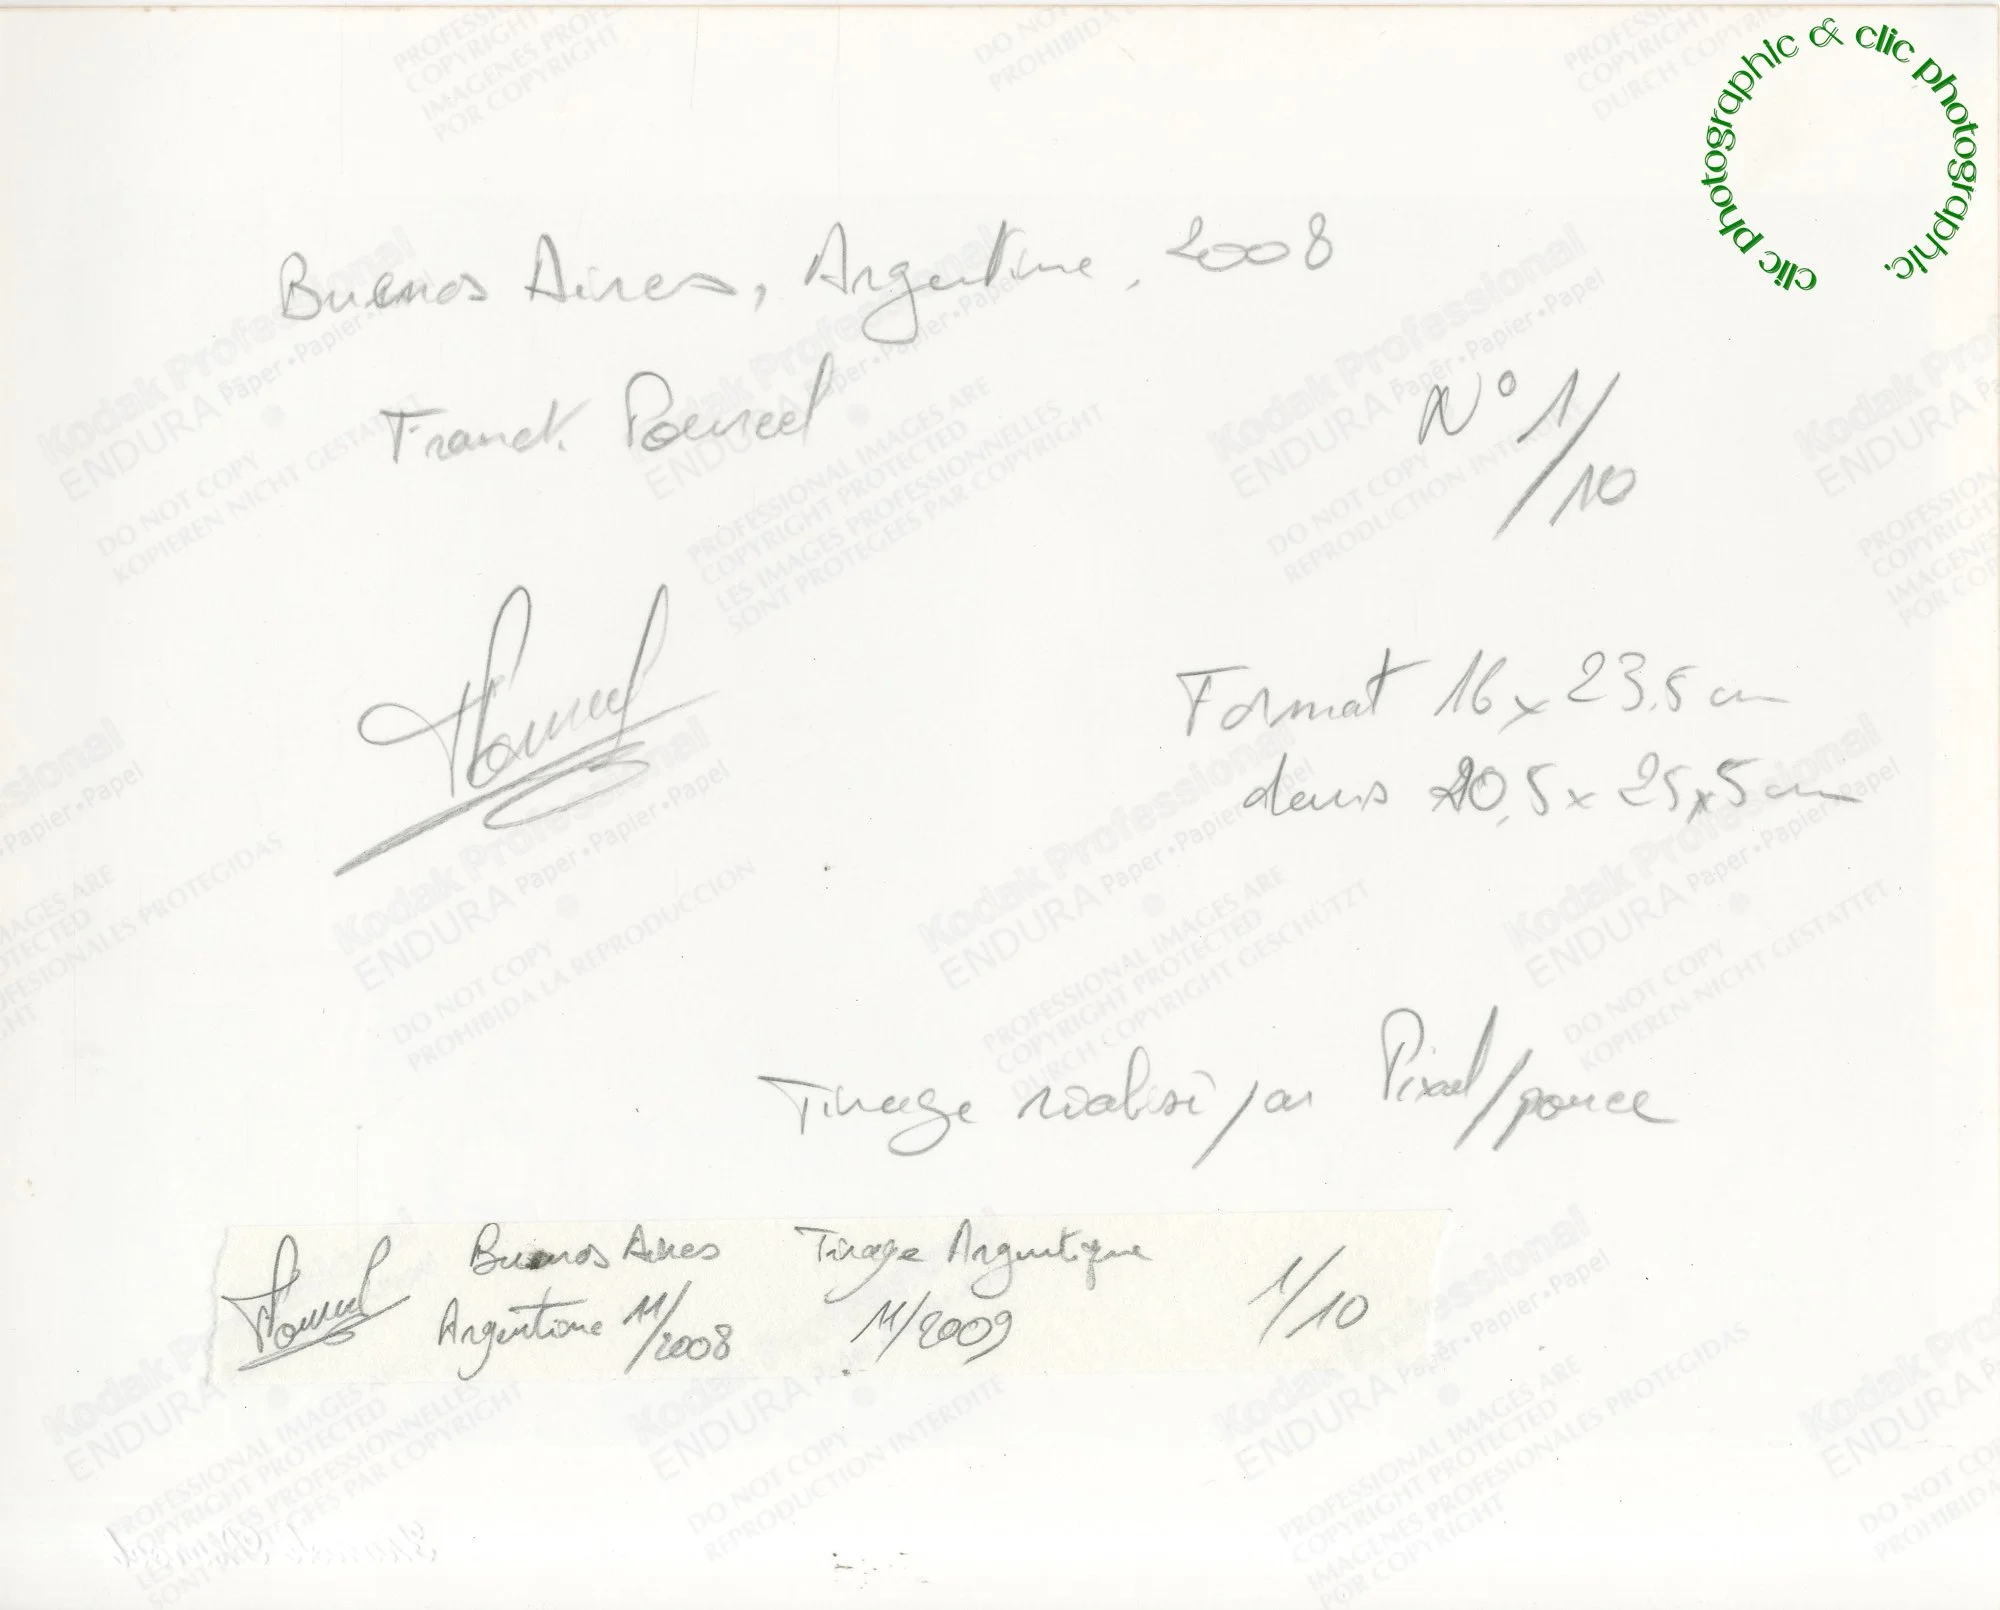 clic photographic & clic photographic.
Buenos Aires, Argentine, 2008
Franck Pourcel
N° 1/10
Format 16 x 23,5 cm
dans 20,5 x 25,5 cm
Tirage réalisé par Pixel/pouce
Buenos Aires
Argentine 11/2008
Tirage Argentique
11/2009
1/10
Kodak Professional
ENDURA Paper • Papier • Papel
DO NOT COPY
KOPIEREN NICHT GESTATTET
PROFESSIONAL IMAGES ARE
COPYRIGHT PROTECTED
LES IMAGES PROFESSIONNELLES
SONT PROTEGEES PAR COPYRIGHT
DO NOT COPY
REPRODUCTION INTERDITE
DO NOT COPY
PROHIBIDA LA REPRODUCCION
PROFESSIONAL IMAGES ARE
COPYRIGHT PROTECTED
DURCH COPYRIGHT GESCHÜTZT
PROFESSIONAL IMAGES ARE
COPYRIGHT PROTECTED
IMAGENES PROFESIONALES PROTEGIDAS
POR COPYRIGHT